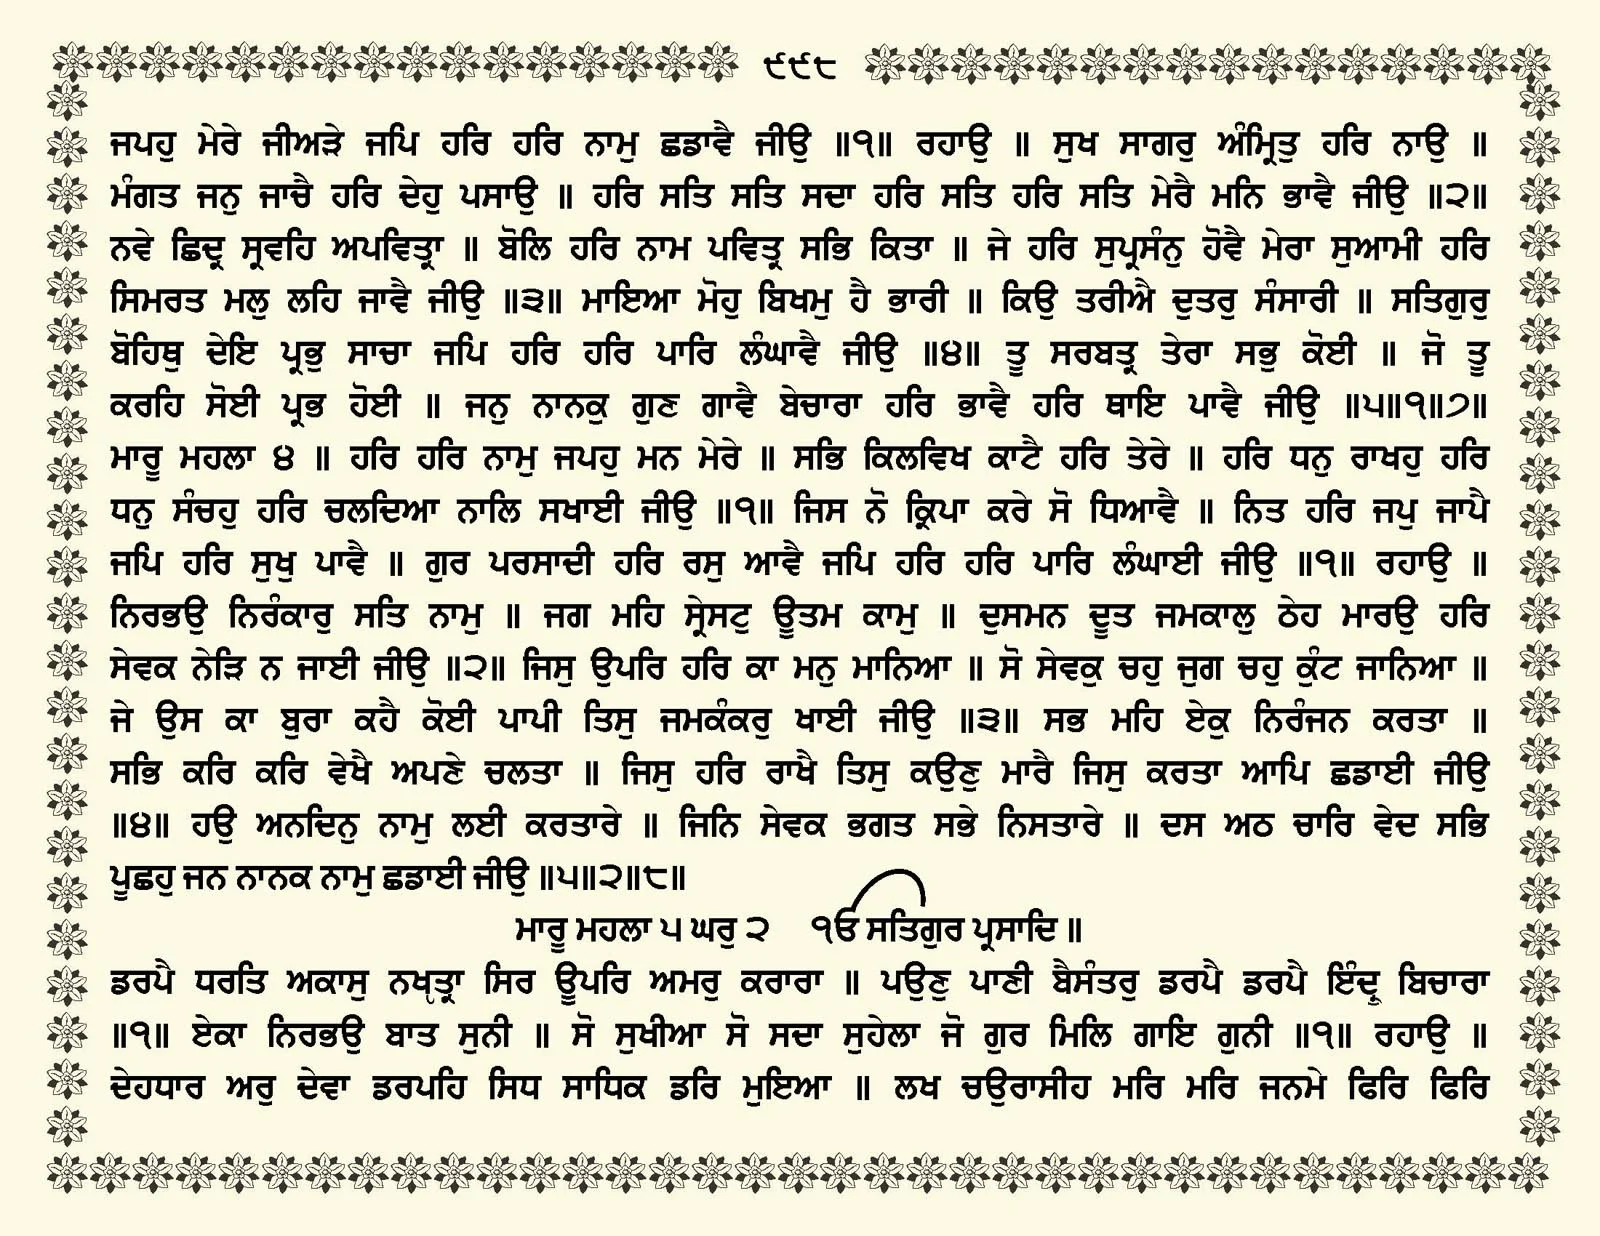 ੯੯੮
ਜਪਹੁ ਮੇਰੇ ਜੀਅੜੇ ਜਪਿ ਹਰਿ ਹਰਿ ਨਾਮੁ ਛਡਾਵੈ ਜੀਉ ॥੧॥ ਰਹਾਉ ॥ ਸੁਖ ਸਾਗਰੁ ਅੰਮ੍ਰਿਤੁ ਹਰਿ ਨਾਉ ॥
ਮੰਗਤ ਜਨੁ ਜਾਚੈ ਹਰਿ ਦੇਹੁ ਪਸਾਉ ॥ ਹਰਿ ਸਤਿ ਸਤਿ ਸਦਾ ਹਰਿ ਸਤਿ ਹਰਿ ਸਤਿ ਮੇਰੈ ਮਨਿ ਭਾਵੈ ਜੀਉ ॥੨॥
ਨਵੇ ਛਿਦ੍ਰ ਸ੍ਰਵਹਿ ਅਪਵਿਤ੍ਰਾ ॥ ਬੋਲਿ ਹਰਿ ਨਾਮ ਪਵਿਤ੍ਰ ਸਭਿ ਕਿਤਾ ॥ ਜੇ ਹਰਿ ਸੁਪ੍ਰਸੰਨੁ ਹੋਵੈ ਮੇਰਾ ਸੁਆਮੀ ਹਰਿ
ਸਿਮਰਤ ਮਲੁ ਲਹਿ ਜਾਵੈ ਜੀਉ ॥੩॥ ਮਾਇਆ ਮੋਹੁ ਬਿਖਮੁ ਹੈ ਭਾਰੀ ॥ ਕਿਉ ਤਰੀਐ ਦੁਤਰੁ ਸੰਸਾਰੀ ॥ ਸਤਿਗੁਰੁ
ਬੋਹਿਥੁ ਦੇਇ ਪ੍ਰਭੁ ਸਾਚਾ ਜਪਿ ਹਰਿ ਹਰਿ ਪਾਰਿ ਲੰਘਾਵੈ ਜੀਉ ॥੪॥ ਤੂ ਸਰਬਤ੍ਰ ਤੇਰਾ ਸਭੁ ਕੋਈ ॥ ਜੋ ਤੂ
ਕਰਹਿ ਸੋਈ ਪ੍ਰਭ ਹੋਈ ॥ ਜਨੁ ਨਾਨਕੁ ਗੁਣ ਗਾਵੈ ਬੇਚਾਰਾ ਹਰਿ ਭਾਵੈ ਹਰਿ ਥਾਇ ਪਾਵੈ ਜੀਉ ॥੫॥੧॥੭॥
ਮਾਰੂ ਮਹਲਾ ੪ ॥ ਹਰਿ ਹਰਿ ਨਾਮੁ ਜਪਹੁ ਮਨ ਮੇਰੇ ॥ ਸਭਿ ਕਿਲਵਿਖ ਕਾਟੈ ਹਰਿ ਤੇਰੇ ॥ ਹਰਿ ਧਨੁ ਰਾਖਹੁ ਹਰਿ
ਧਨੁ ਸੰਚਹੁ ਹਰਿ ਚਲਦਿਆ ਨਾਲਿ ਸਖਾਈ ਜੀਉ ॥੧॥ ਜਿਸ ਨੋ ਕ੍ਰਿਪਾ ਕਰੇ ਸੋ ਧਿਆਵੈ ॥ ਨਿਤ ਹਰਿ ਜਪੁ ਜਾਪੈ
ਜਪਿ ਹਰਿ ਸੁਖੁ ਪਾਵੈ ॥ ਗੁਰ ਪਰਸਾਦੀ ਹਰਿ ਰਸੁ ਆਵੈ ਜਪਿ ਹਰਿ ਹਰਿ ਪਾਰਿ ਲੰਘਾਈ ਜੀਉ ॥੧॥ ਰਹਾਉ ॥
ਨਿਰਭਉ ਨਿਰੰਕਾਰੁ ਸਤਿ ਨਾਮੁ ॥ ਜਗ ਮਹਿ ਸ੍ਰੇਸਟੁ ਊਤਮ ਕਾਮੁ ॥ ਦੁਸਮਨ ਦੂਤ ਜਮਕਾਲੁ ਠੇਹ ਮਾਰਉ ਹਰਿ
ਸੇਵਕ ਨੇੜਿ ਨ ਜਾਈ ਜੀਉ ॥੨॥ ਜਿਸੁ ਉਪਰਿ ਹਰਿ ਕਾ ਮਨੁ ਮਾਨਿਆ ॥ ਸੋ ਸੇਵਕੁ ਚਹੁ ਜੁਗ ਚਹੁ ਕੁੰਟ ਜਾਨਿਆ ॥
ਜੇ ਉਸ ਕਾ ਬੁਰਾ ਕਹੈ ਕੋਈ ਪਾਪੀ ਤਿਸੁ ਜਮਕੰਕਰੁ ਖਾਈ ਜੀਉ ॥੩॥ ਸਭ ਮਹਿ ਏਕੁ ਨਿਰੰਜਨ ਕਰਤਾ ॥
ਸਭਿ ਕਰਿ ਕਰਿ ਵੇਖੈ ਅਪਣੇ ਚਲਤਾ ॥ ਜਿਸੁ ਹਰਿ ਰਾਖੈ ਤਿਸੁ ਕਉਣੁ ਮਾਰੈ ਜਿਸੁ ਕਰਤਾ ਆਪਿ ਛਡਾਈ ਜੀਉ
॥੪॥ ਹਉ ਅਨਦਿਨੁ ਨਾਮੁ ਲਈ ਕਰਤਾਰੇ ॥ ਜਿਨਿ ਸੇਵਕ ਭਗਤ ਸਭੇ ਨਿਸਤਾਰੇ ॥ ਦਸ ਅਠ ਚਾਰਿ ਵੇਦ ਸਭਿ
ਪੂਛਹੁ ਜਨ ਨਾਨਕ ਨਾਮੁ ਛਡਾਈ ਜੀਉ ॥੫॥੨॥੮॥
ਮਾਰੂ ਮਹਲਾ ੫ ਘਰੁ ੨ ੴ ਸਤਿਗੁਰ ਪ੍ਰਸਾਦਿ ॥
ਡਰਪੈ ਧਰਤਿ ਅਕਾਸੁ ਨਖੵਤ੍ਰਾ ਸਿਰ ਊਪਰਿ ਅਮਰੁ ਕਰਾਰਾ ॥ ਪਉਣੁ ਪਾਣੀ ਬੈਸੰਤਰੁ ਡਰਪੈ ਡਰਪੈ ਇੰਦ੍ਰੁ ਬਿਚਾਰਾ
॥੧॥ ਏਕਾ ਨਿਰਭਉ ਬਾਤ ਸੁਨੀ ॥ ਸੋ ਸੁਖੀਆ ਸੋ ਸਦਾ ਸੁਹੇਲਾ ਜੋ ਗੁਰ ਮਿਲਿ ਗਾਇ ਗੁਨੀ ॥੧॥ ਰਹਾਉ ॥
ਦੇਹਧਾਰ ਅਰੁ ਦੇਵਾ ਡਰਪਹਿ ਸਿਧ ਸਾਧਿਕ ਡਰਿ ਮੁਇਆ ॥ ਲਖ ਚਉਰਾਸੀਹ ਮਰਿ ਮਰਿ ਜਨਮੇ ਫਿਰਿ ਫਿਰਿ